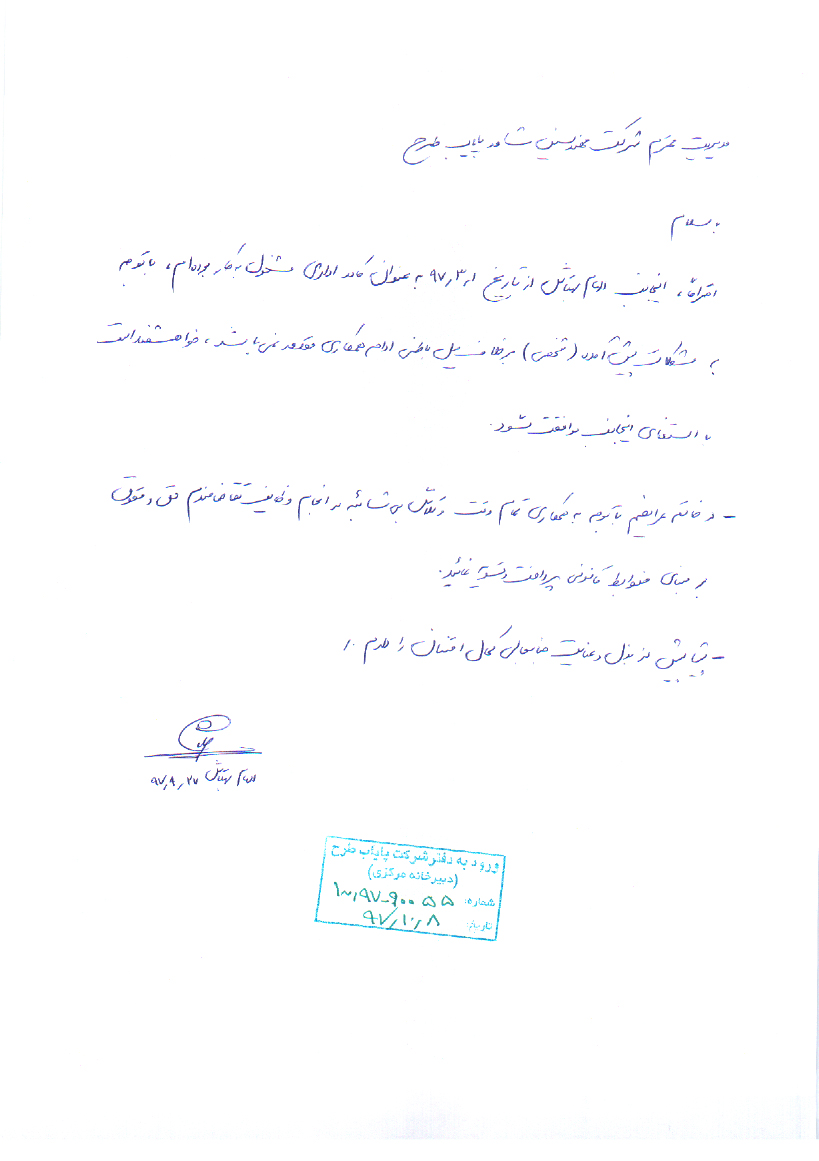 مدیریت محترم شرکت مهندسین مشاور پایاب طرح
با سلام
احتراماً، اینجانب الهام از تاریخ ۹۷٫۳٫۱ به عنوان کادر اداری مشغول به کار بوده‌ام، با توجه
به مشکلات پیش آمده (شخصی) برخلاف میل باطنی ادامه همکاری مقدور نمی باشد، خواهشمند است
با استعفای اینجانب موافقت شود.
- در خاتمه عرایضم با توجه به همکاری تمام وقت و تلاش بی شائبه در انجام وظایف تقاضامندم حق و حقوق
بر مبنای ضوابط قانونی پرداخت و تسویه نمائید.
- پیشاپیش از بذل و عنایت جنابعالی کمال امتنان را دارم ./
الهام ۹۷٫۹٫۲۷
ورود به دفتر شرکت پایاب طرح
(دبیرخانه مرکزی)
شماره: ۹۷-۹۰۰۵۵
تاریخ: ۹۷/۱۰/۸